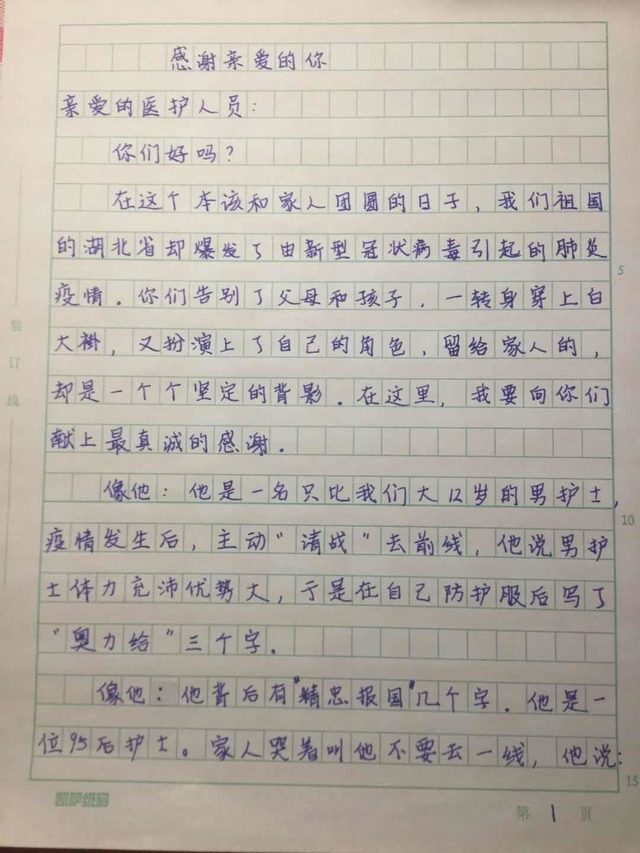 感谢亲爱的你
亲爱的医护人员:
你们好吗?
在这个本该和家人团圆的日子,我们祖国
的湖北省却爆发了由新型冠状病毒引起的肺炎
5
疫情.你们告别了父母和孩子,一转身穿上白
大褂,又扮演上了自己的角色,留给家人的,
却是一个个坚定的背影.在这里,我要向你们
献上最真诚的感谢.
像他:他是一名只比我们大12岁的男护士,
10
疫情发生后,主动"请战"去前线,他说男护
士体力充沛优势大,于是在自己防护服后写了
"奥力给"三个字.
像他:他背后有"精忠报国"几个字.他是一
位95后护士。家人哭着叫他不要去一线,他说:
15
第1页
装订线